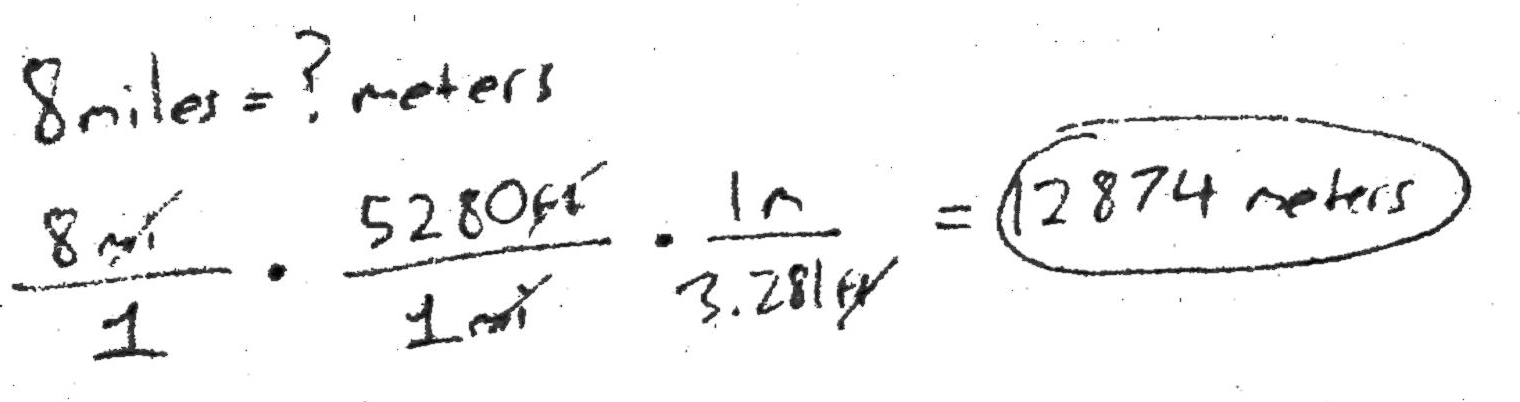 8 miles = ? meters
8 mi/1 · 5280 ft/1 mi · 1 m/3.281 ft = 12874 meters